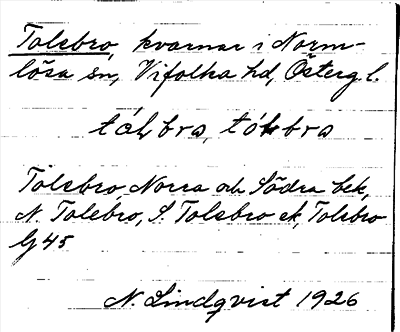 Tolebro, kvarnar i Norm-
lösa sn, Vifolka hd, Österg. l.
tólbro, tókbro
Tolebro, Norra och Södra bek,
N. Tolebro, S. Tolebro ek, Tolebro
G 45
N Lindqvist 1926